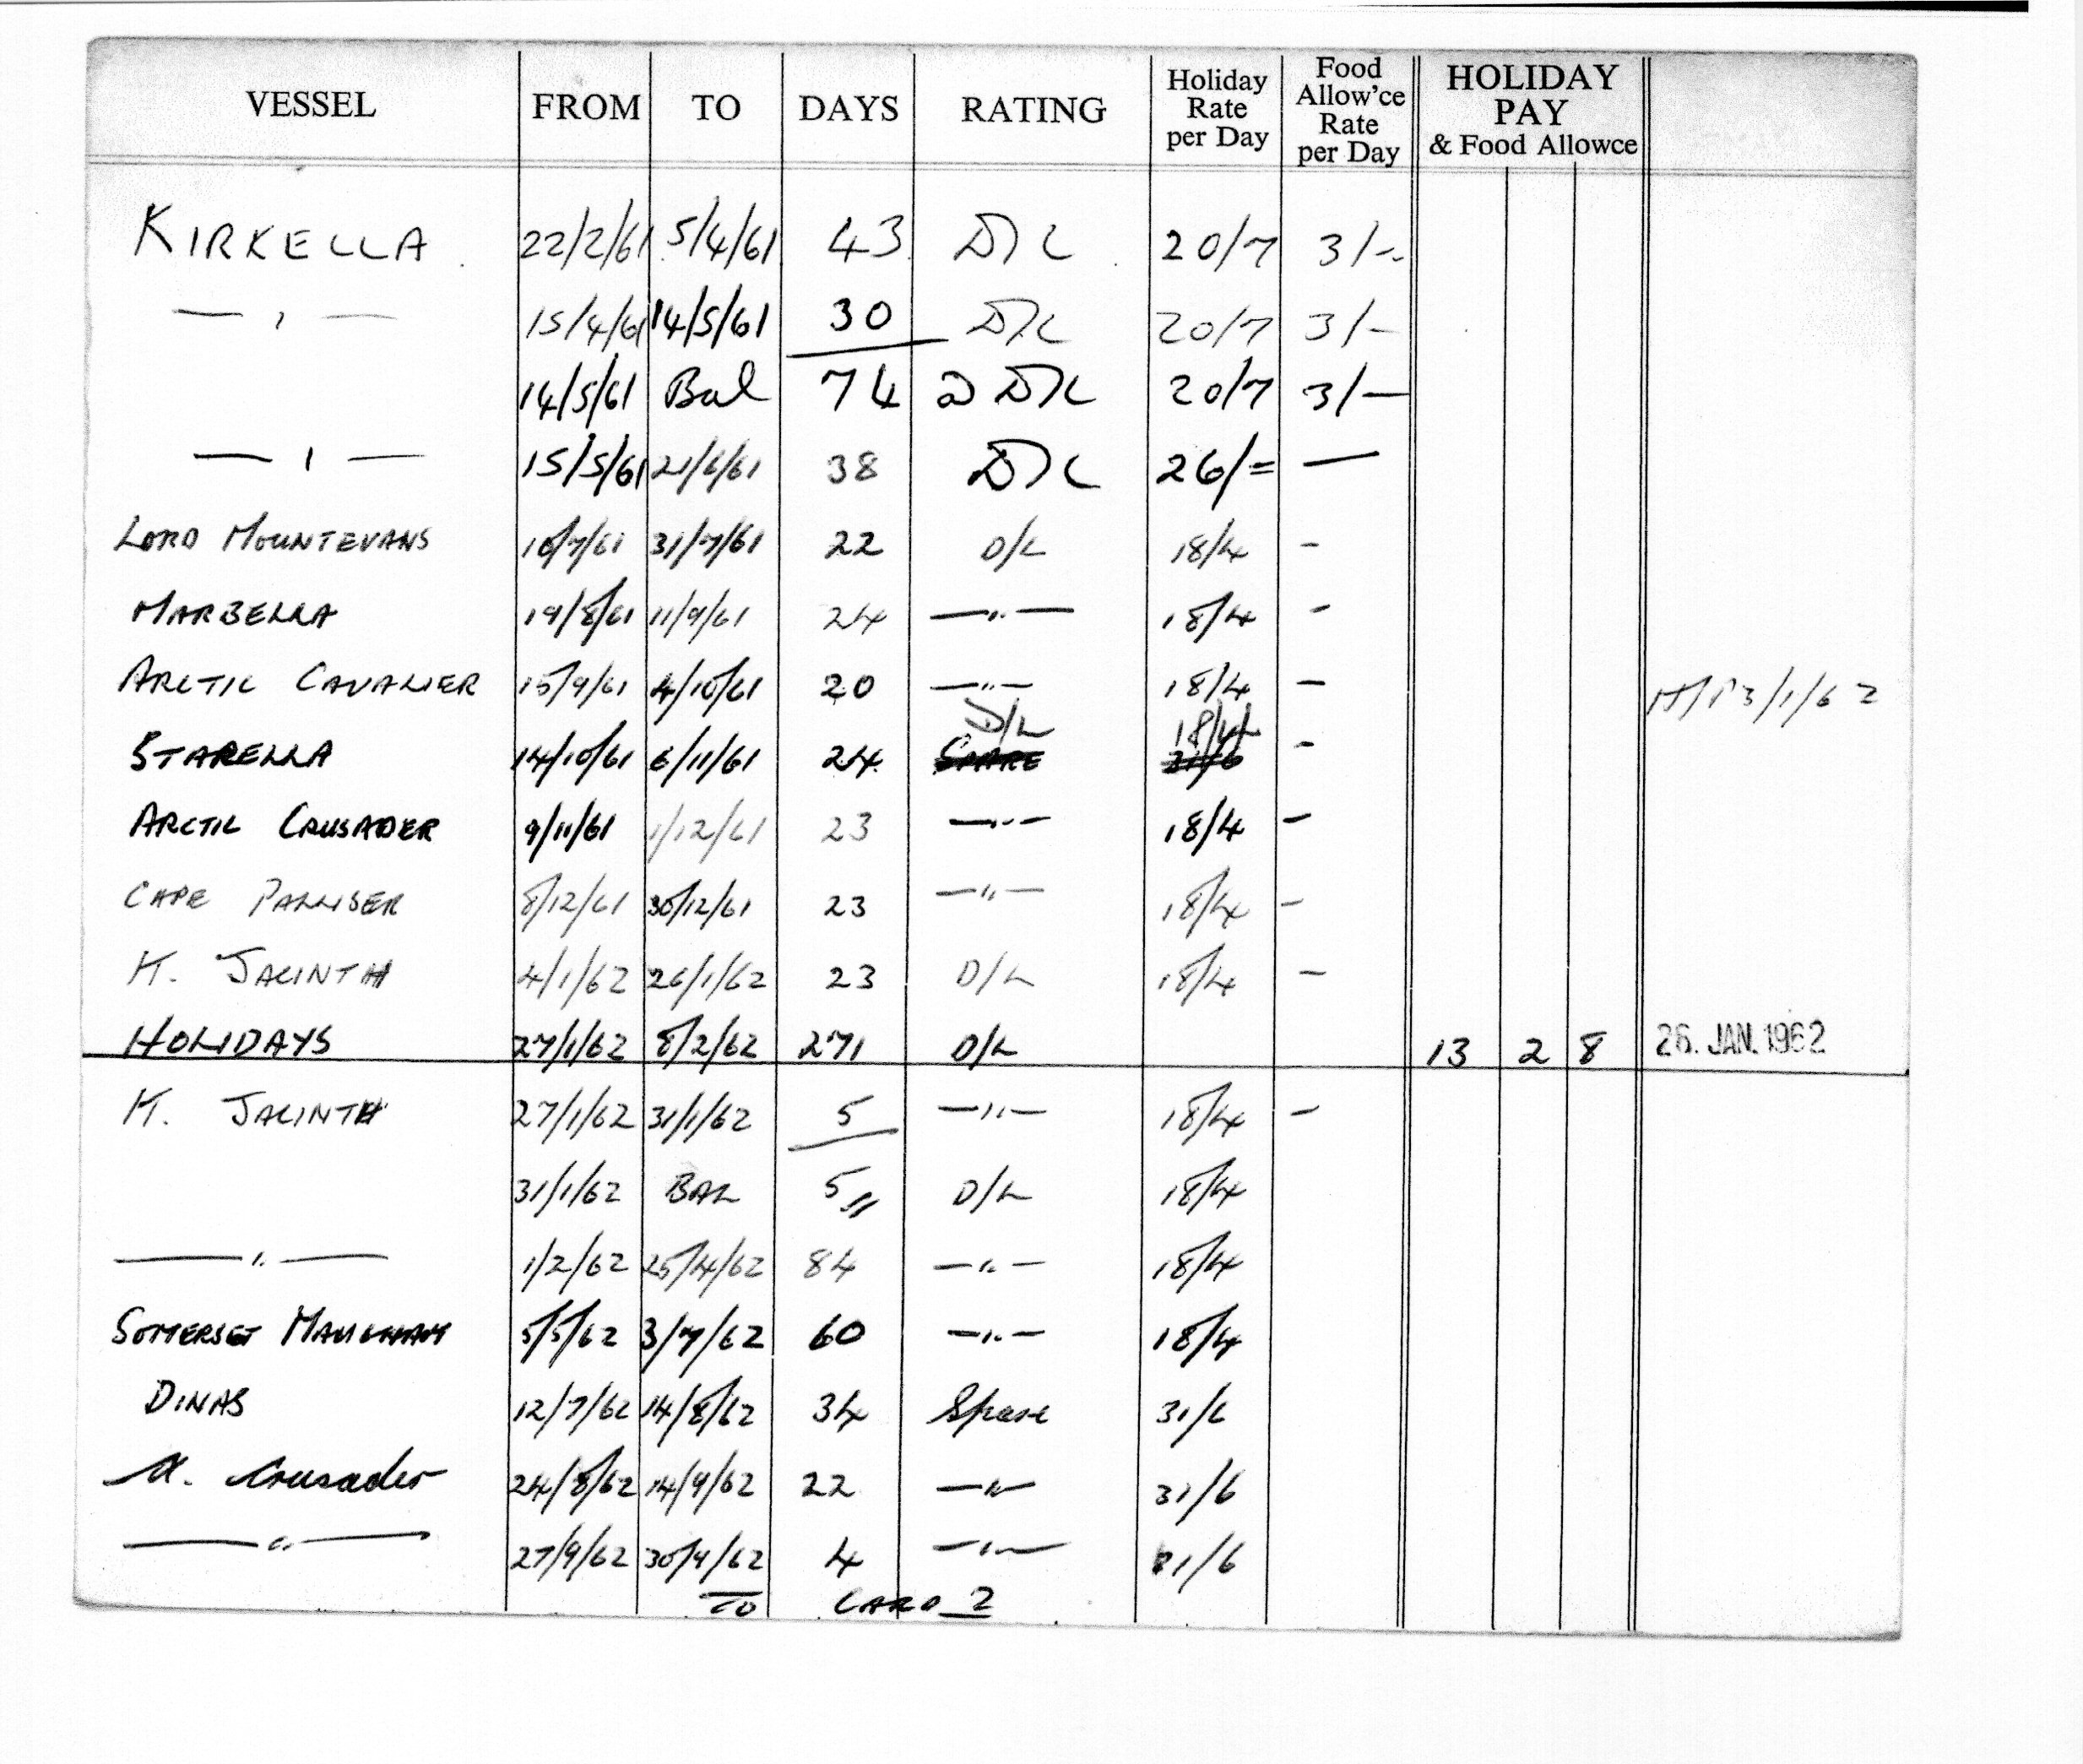 VESSEL FROM TO DAYS RATING Holiday Rate per Day Food Allow'ce Rate per Day HOLIDAY PAY & Food Allowce
KIRKELLA 22/2/61 5/4/61 43 D/L 20/7 3/-
— " — 15/4/61 14/5/61 30 D/L 20/7 3/-
14/5/61 Bal 74 D/L 20/7 3/-
— " — 15/5/61 21/6/61 38 D/L 26/= —
LORD MOUNTEVANS 10/7/61 31/7/61 22 D/L 18/4 -
MARBELLA 19/8/61 11/9/61 24 — " — 18/4 -
ARCTIC CAVALIER 15/9/61 4/10/61 20 — " — 18/4 - H/P 3/1/62
STARELLA 14/10/61 6/11/61 24 SPARE D/L 21/6 18/4 -
ARCTIC CRUSADER 9/11/61 1/12/61 23 — " — 18/4 -
CAPE PALLISER 8/12/61 30/12/61 23 — " — 18/4 -
K. JACINTH 4/1/62 26/1/62 23 D/L 18/4 -
HOLIDAYS 27/1/62 8/2/62 271 D/L 13 2 8 26. JAN. 1962
K. JACINTH 27/1/62 31/1/62 5 — " — 18/4 -
31/1/62 BAL 5 D/L 18/4
— " — 1/2/62 25/4/62 84 — " — 18/4
SOMERSET MAUGHAM 5/5/62 3/7/62 60 — " — 18/4
DINAS 12/7/62 14/8/62 34 Spare 31/6
A. Crusader 24/8/62 14/9/62 22 — " — 31/6
— " — 27/9/62 30/9/62 4 — " — 31/6
TO CARD 2